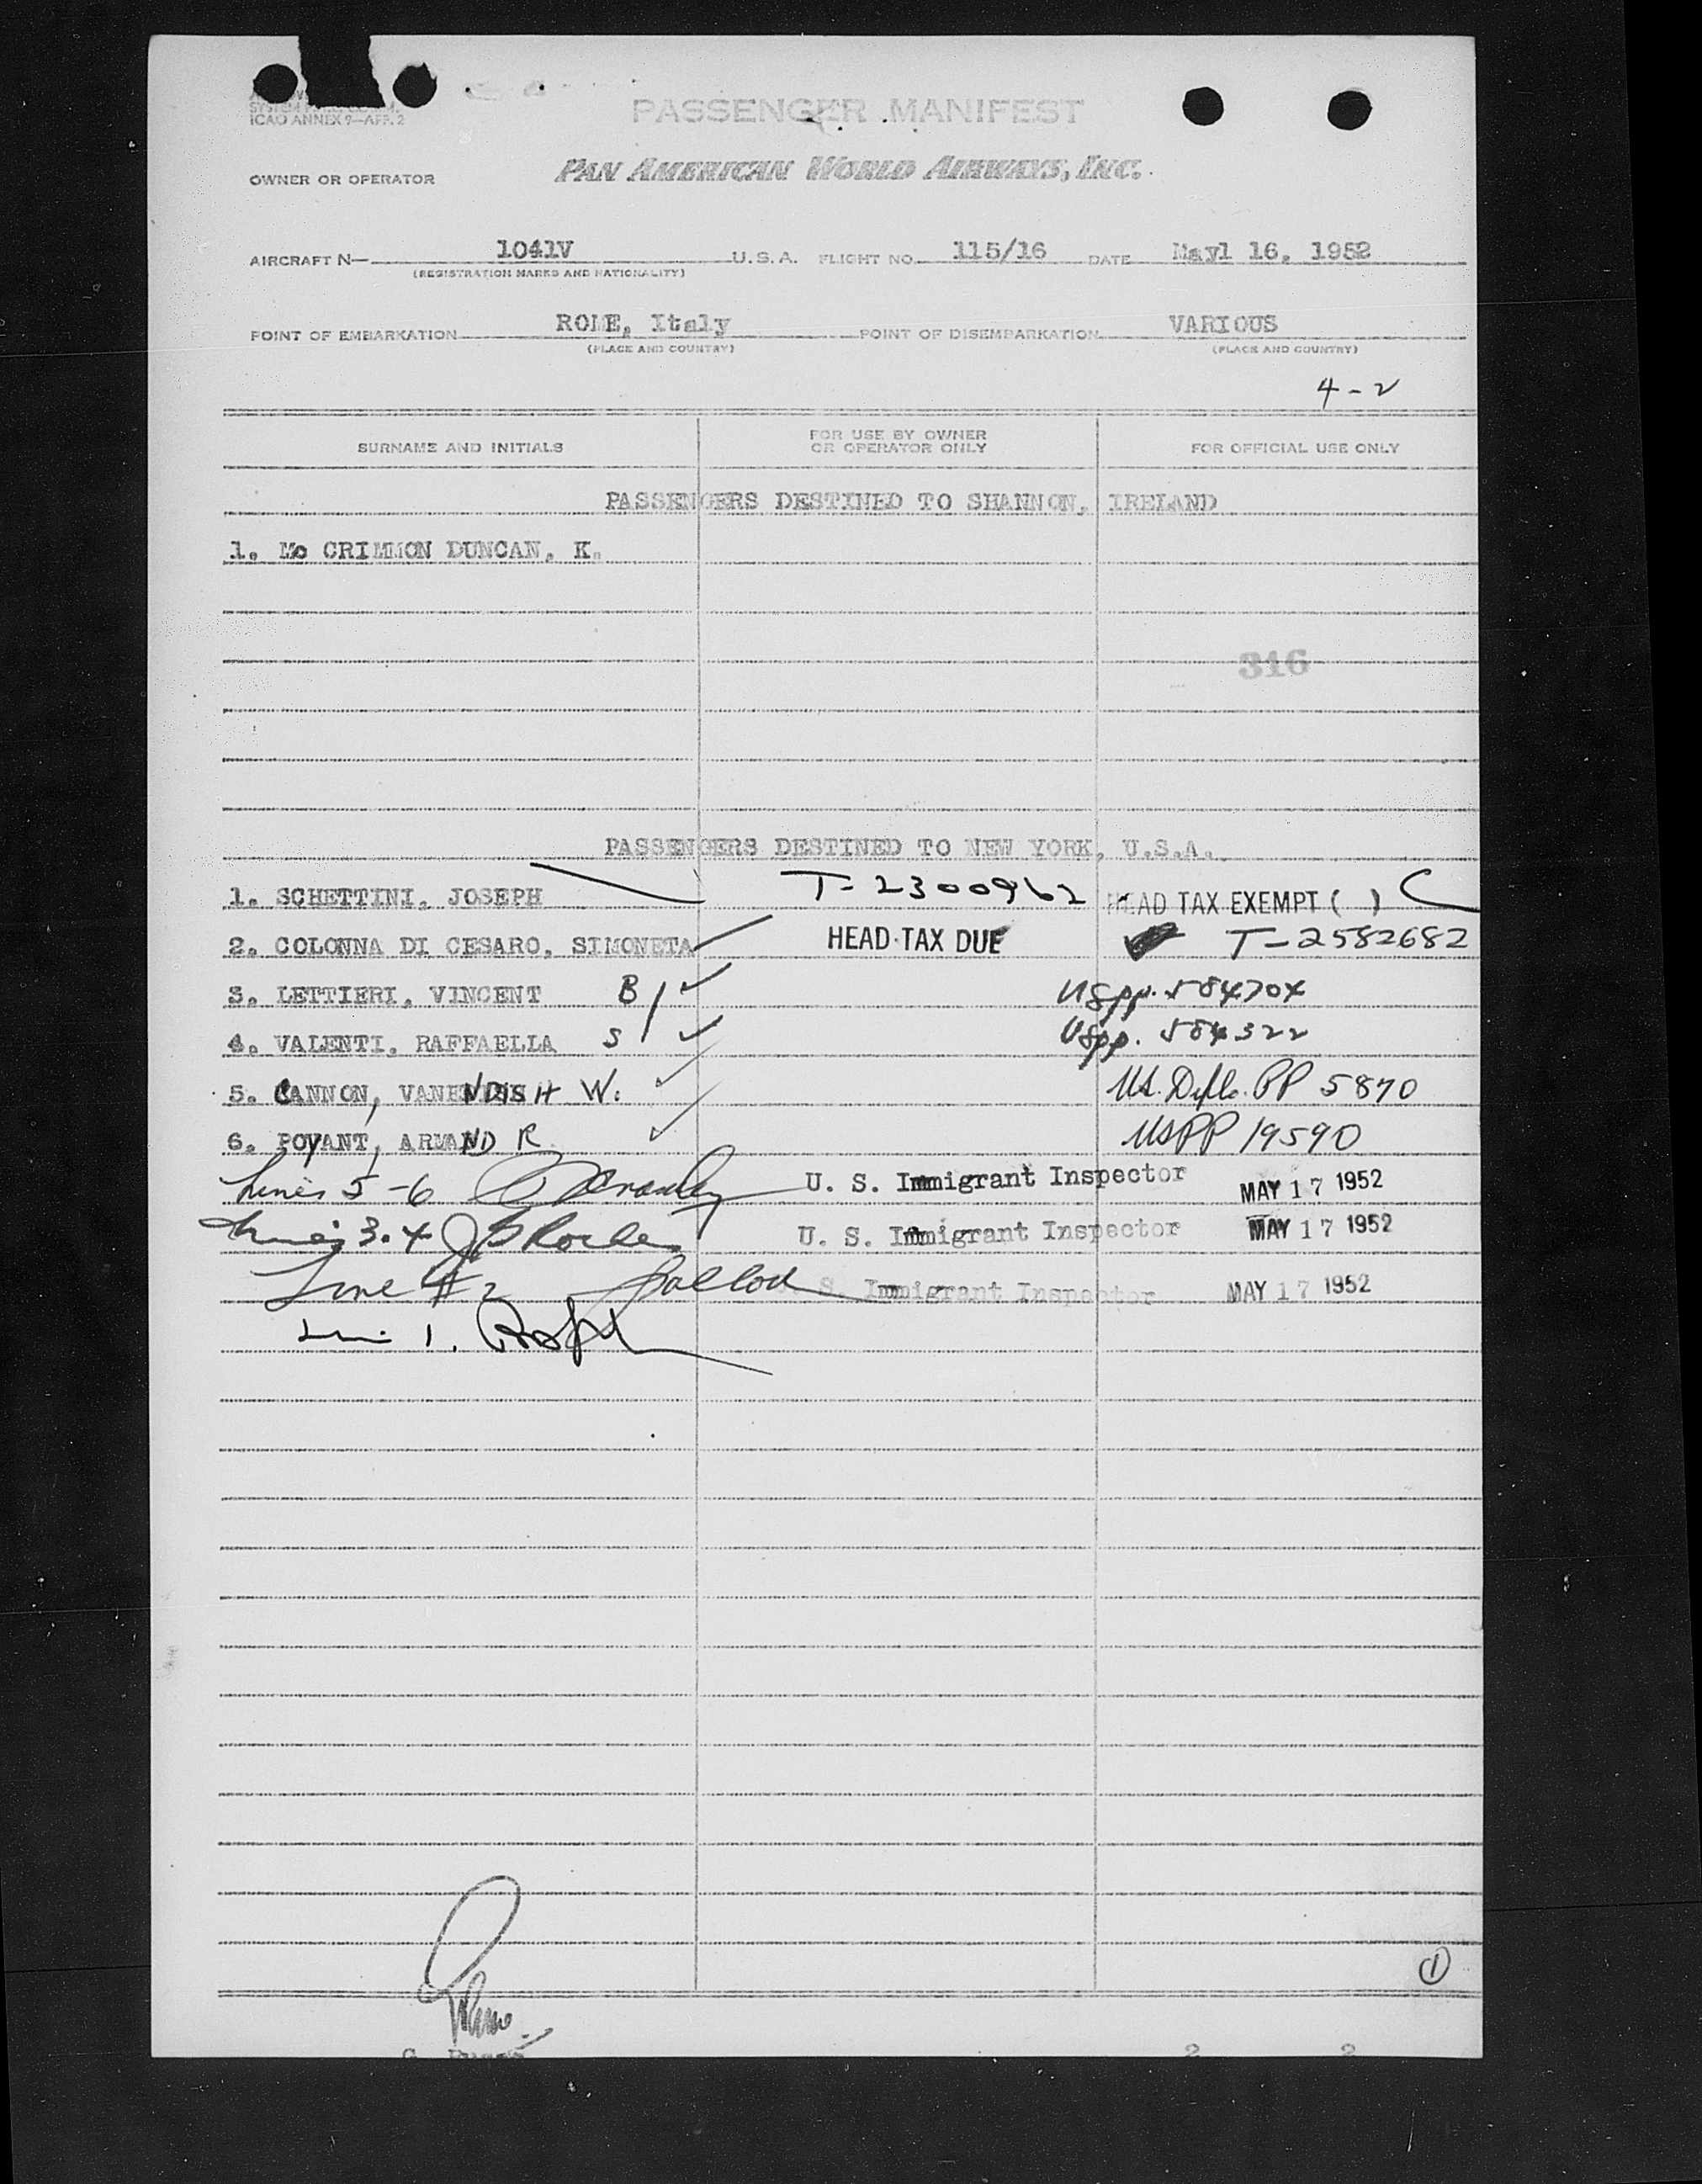 ICAO ANNEX 9—APP. 2
PASSENGER MANIFEST
OWNER OR OPERATOR PAN AMERICAN WORLD AIRWAYS, INC.
AIRCRAFT N— 1041V U.S.A. FLIGHT NO. 115/16 DATE Mayl 16, 1952
(REGISTRATION MARKS AND NATIONALITY)
POINT OF EMBARKATION ROME, Italy POINT OF DISEMBARKATION VARIOUS
(PLACE AND COUNTRY) (PLACE AND COUNTRY)
4-2
SURNAME AND INITIALS FOR USE BY OWNER OR OPERATOR ONLY FOR OFFICIAL USE ONLY
PASSENGERS DESTINED TO SHANNON, IRELAND
1. Mc CRIMMON DUNCAN, K.
316
PASSENGERS DESTINED TO NEW YORK, U.S.A.
1. SCHETTINI, JOSEPH T-2300962 HEAD TAX EXEMPT ( )
2. COLONNA DI CESARO, SIMONETA HEAD TAX DUE T-2582682
3. LETTIERI, VINCENT B/ US pp. 584704
4. VALENTI, RAFFAELLA S/ US pp. 584322
5. CANNON, VANENDISH W. US. Diplo. PP 5870
6. POYANT, ARMAND R USPP 19590
Lines 5-6 U. S. Immigrant Inspector MAY 17 1952
Lines 3.4 U. S. Immigrant Inspector MAY 17 1952
Line #2 S. Immigrant Inspector MAY 17 1952
1.
1
2 2